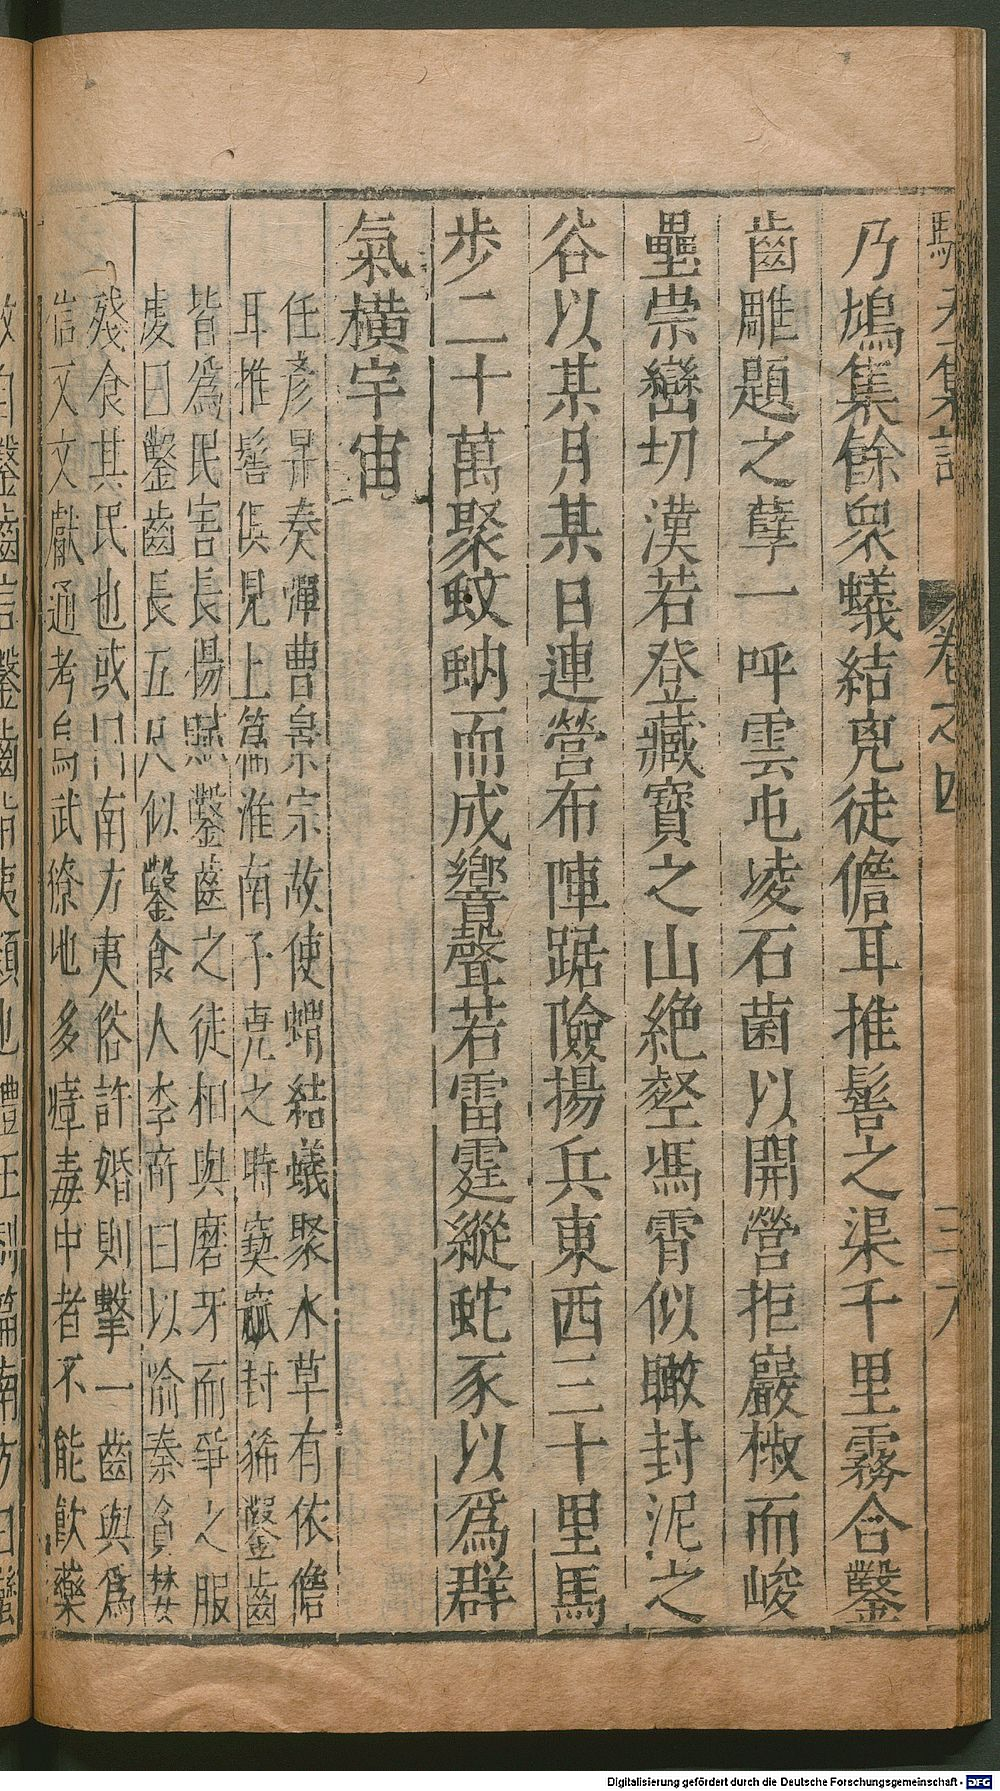 卷之四
乃鳩集餘衆蟻結兇徒儋耳推髻之渠千里霧合鑿
齒雕題之孽一呼雲屯凌石菌以開營拒巖椒而峻
壘崇巒切漢若登藏寶之山絶壑馮霄似瞰封泥之
谷以某月某日連營布陣踞險揚兵東西三十里馬
步二十萬聚蚊蚋而成響聲若雷霆縱蛇豕以爲群
氣橫宇宙
任彥昇奏彈曹景宗故使蝟結蟻聚水草有依儋
耳推髻俱見上篇淮南子堯之時窫窳封豨鑿齒
皆爲民害長楊賦鑿齒之徒相與磨牙而爭之服
虔曰鑿齒長五尺似鑿食人李奇曰以喻秦貪婪
殘食其民也或曰南方夷俗許婚則擊一齒與爲
信又文獻通考烏武獠地多瘴毒中者不能飲藥
Digitalisierung gefördert durch die Deutsche Forschungsgemeinschaft - DFG